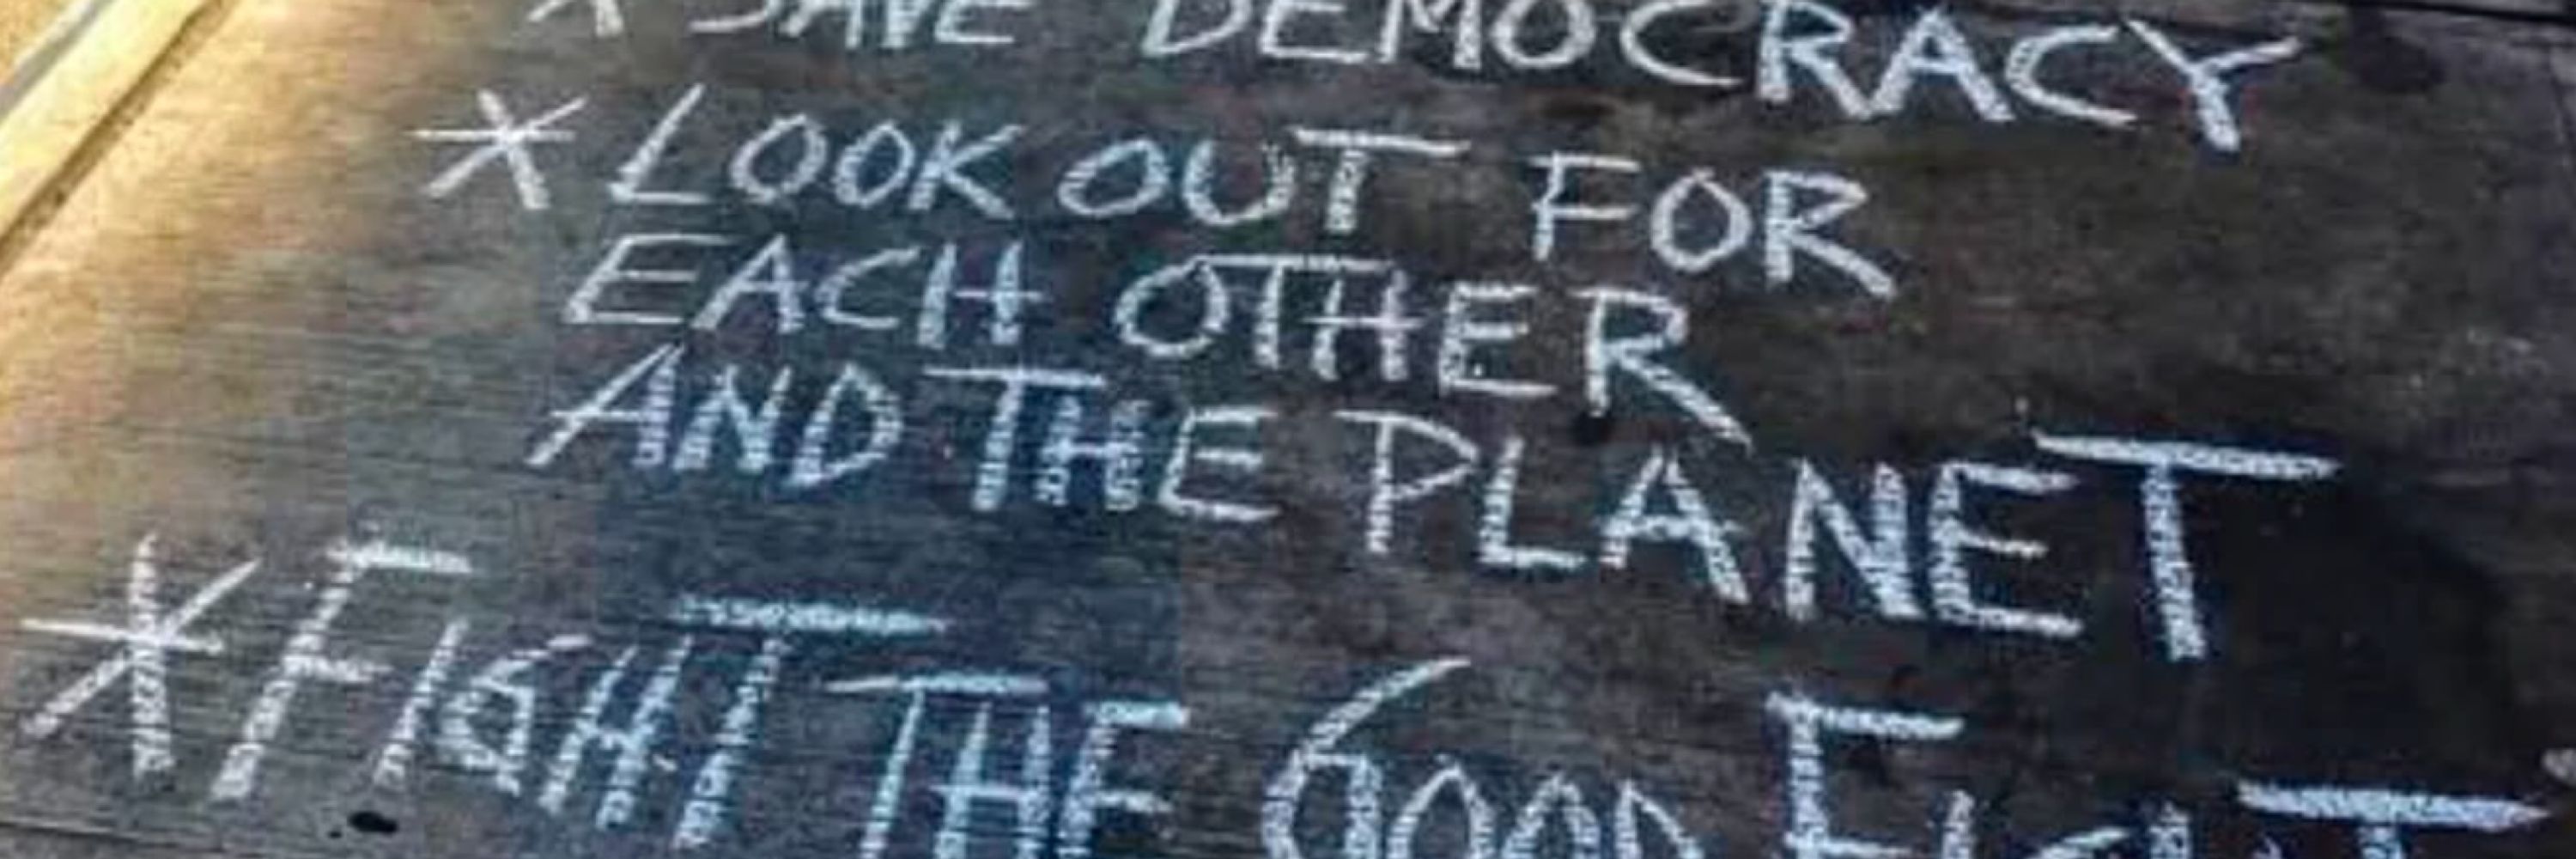 * SAVE DEMOCRACY
* LOOK OUT FOR
EACH OTHER
AND THE PLANET
* FIGHT THE GOOD FIGHT